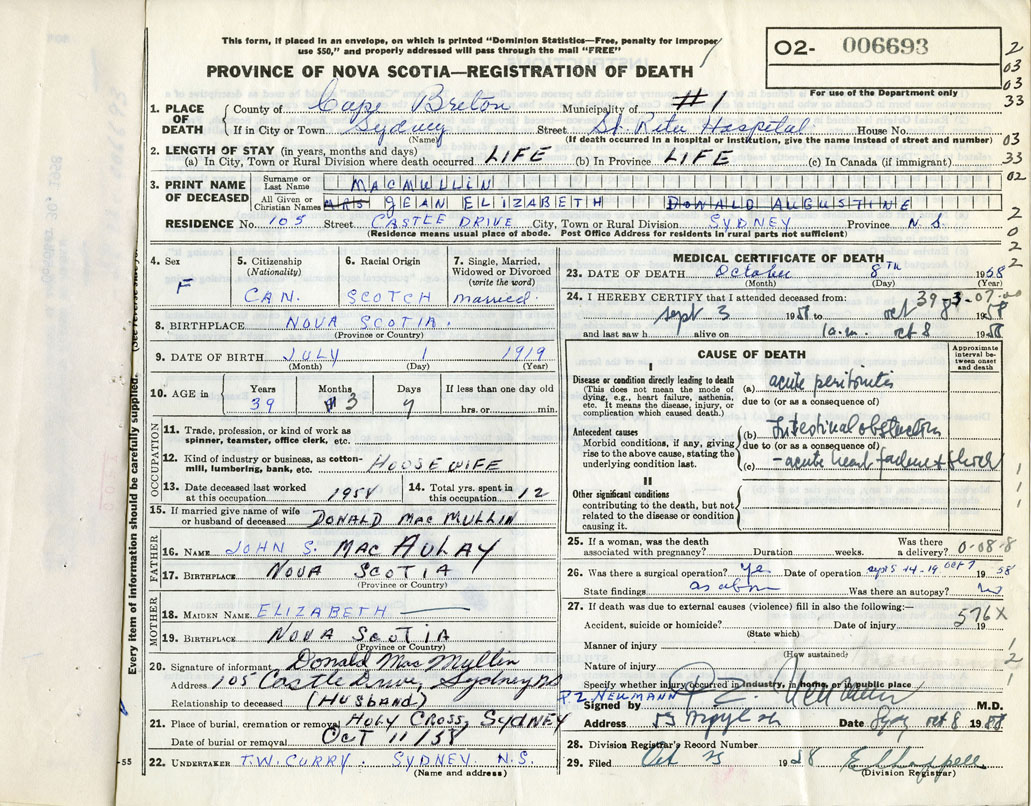 This form, if placed in an envelope, on which is printed "Dominion Statistics—Free, penalty for improper
use $50," and properly addressed will pass through the mail "FREE"
O2- 006693
PROVINCE OF NOVA SCOTIA—REGISTRATION OF DEATH
For use of the Department only
2
03
03
33
1. PLACE OF DEATH County of Cape Breton Municipality of #1
If in City or Town Sydney Street St. Rita Hospital House No.
(Name) (If death occurred in a hospital or institution, give the name instead of street and number)
03
2. LENGTH OF STAY (in years, months and days)
33
(a) In City, Town or Rural Division where death occurred LIFE (b) In Province LIFE (c) In Canada (if immigrant)
02
3. PRINT NAME OF DECEASED
Surname or Last Name MACMULLIN
All Given or Christian Names MRS JEAN ELIZABETH DONALD AUGUSTINE
2
RESIDENCE No. 105 Street CASTLE DRIVE City, Town or Rural Division SYDNEY Province N.S.
0
(Residence means usual place of abode. Post Office Address for residents in rural parts not sufficient)
2
2
4. Sex F
5. Citizenship (Nationality) CAN.
6. Racial Origin SCOTCH
7. Single, Married, Widowed or Divorced (write the word) married.
8. BIRTHPLACE NOVA SCOTIA.
(Province or Country)
9. DATE OF BIRTH JULY 1 1919
(Month) (Day) (Year)
10. AGE in Years 39 Months 3 Days 7 If less than one day old hrs. or min.
OCCUPATION
11. Trade, profession, or kind of work as spinner, teamster, office clerk, etc.
12. Kind of industry or business, as cotton-mill, lumbering, bank, etc. HOUSEWIFE
13. Date deceased last worked at this occupation 1958
14. Total yrs. spent in this occupation 12
15. If married give name of wife or husband of deceased DONALD MAC MULLIN
FATHER
16. NAME JOHN S. MAC AULAY
17. BIRTHPLACE NOVA SCOTIA
(Province or Country)
MOTHER
18. MAIDEN NAME ELIZABETH
19. BIRTHPLACE NOVA SCOTIA
(Province or Country)
20. Signature of informant Donald MacMullin
Address 105 Castle Drive, Sydney NS
Relationship to deceased (HUSBAND)
21. Place of burial, cremation or removal HOLY CROSS, SYDNEY
Date of burial or removal OCT 11/58
22. UNDERTAKER T.W. CURRY. SYDNEY N.S.
(Name and address)
Every item of information should be carefully supplied.
55
MEDICAL CERTIFICATE OF DEATH
23. DATE OF DEATH October 8TH 1958
(Month) (Day) (Year)
24. I HEREBY CERTIFY that I attended deceased from: 39 3-07
Sept 3 1958 to oct 8 1958
and last saw h alive on 1 a.m. oct 8 1958
CAUSE OF DEATH
Approximate interval between onset and death
I
Disease or condition directly leading to death
(This does not mean the mode of dying, e.g., heart failure, asthenia, etc. It means the disease, injury, or complication which caused death.)
(a) acute peritonitis
due to (or as a consequence of)
Antecedent causes
Morbid conditions, if any, giving rise to the above cause, stating the underlying condition last.
(b) Intestinal obstruction
due to (or as a consequence of)
(c) - acute heart failure & shock
II
Other significant conditions
contributing to the death, but not related to the disease or condition causing it.
25. If a woman, was the death associated with pregnancy? Duration weeks. Was there a delivery? 0-08-8
26. Was there a surgical operation? yes Date of operation sept 5 14-19 oct 7 1958
State findings as above Was there an autopsy? no
27. If death was due to external causes (violence) fill in also the following:—
576X
Accident, suicide or homicide? Date of injury 19
(State which)
Manner of injury
(How sustained)
Nature of injury
Specify whether injury occurred in industry, in home, or in public place
P.Z. NEUMANN
Signed by M.D.
Address Date oct 8 1958
28. Division Registrar's Record Number
29. Filed Oct 25 1958
(Division Registrar)